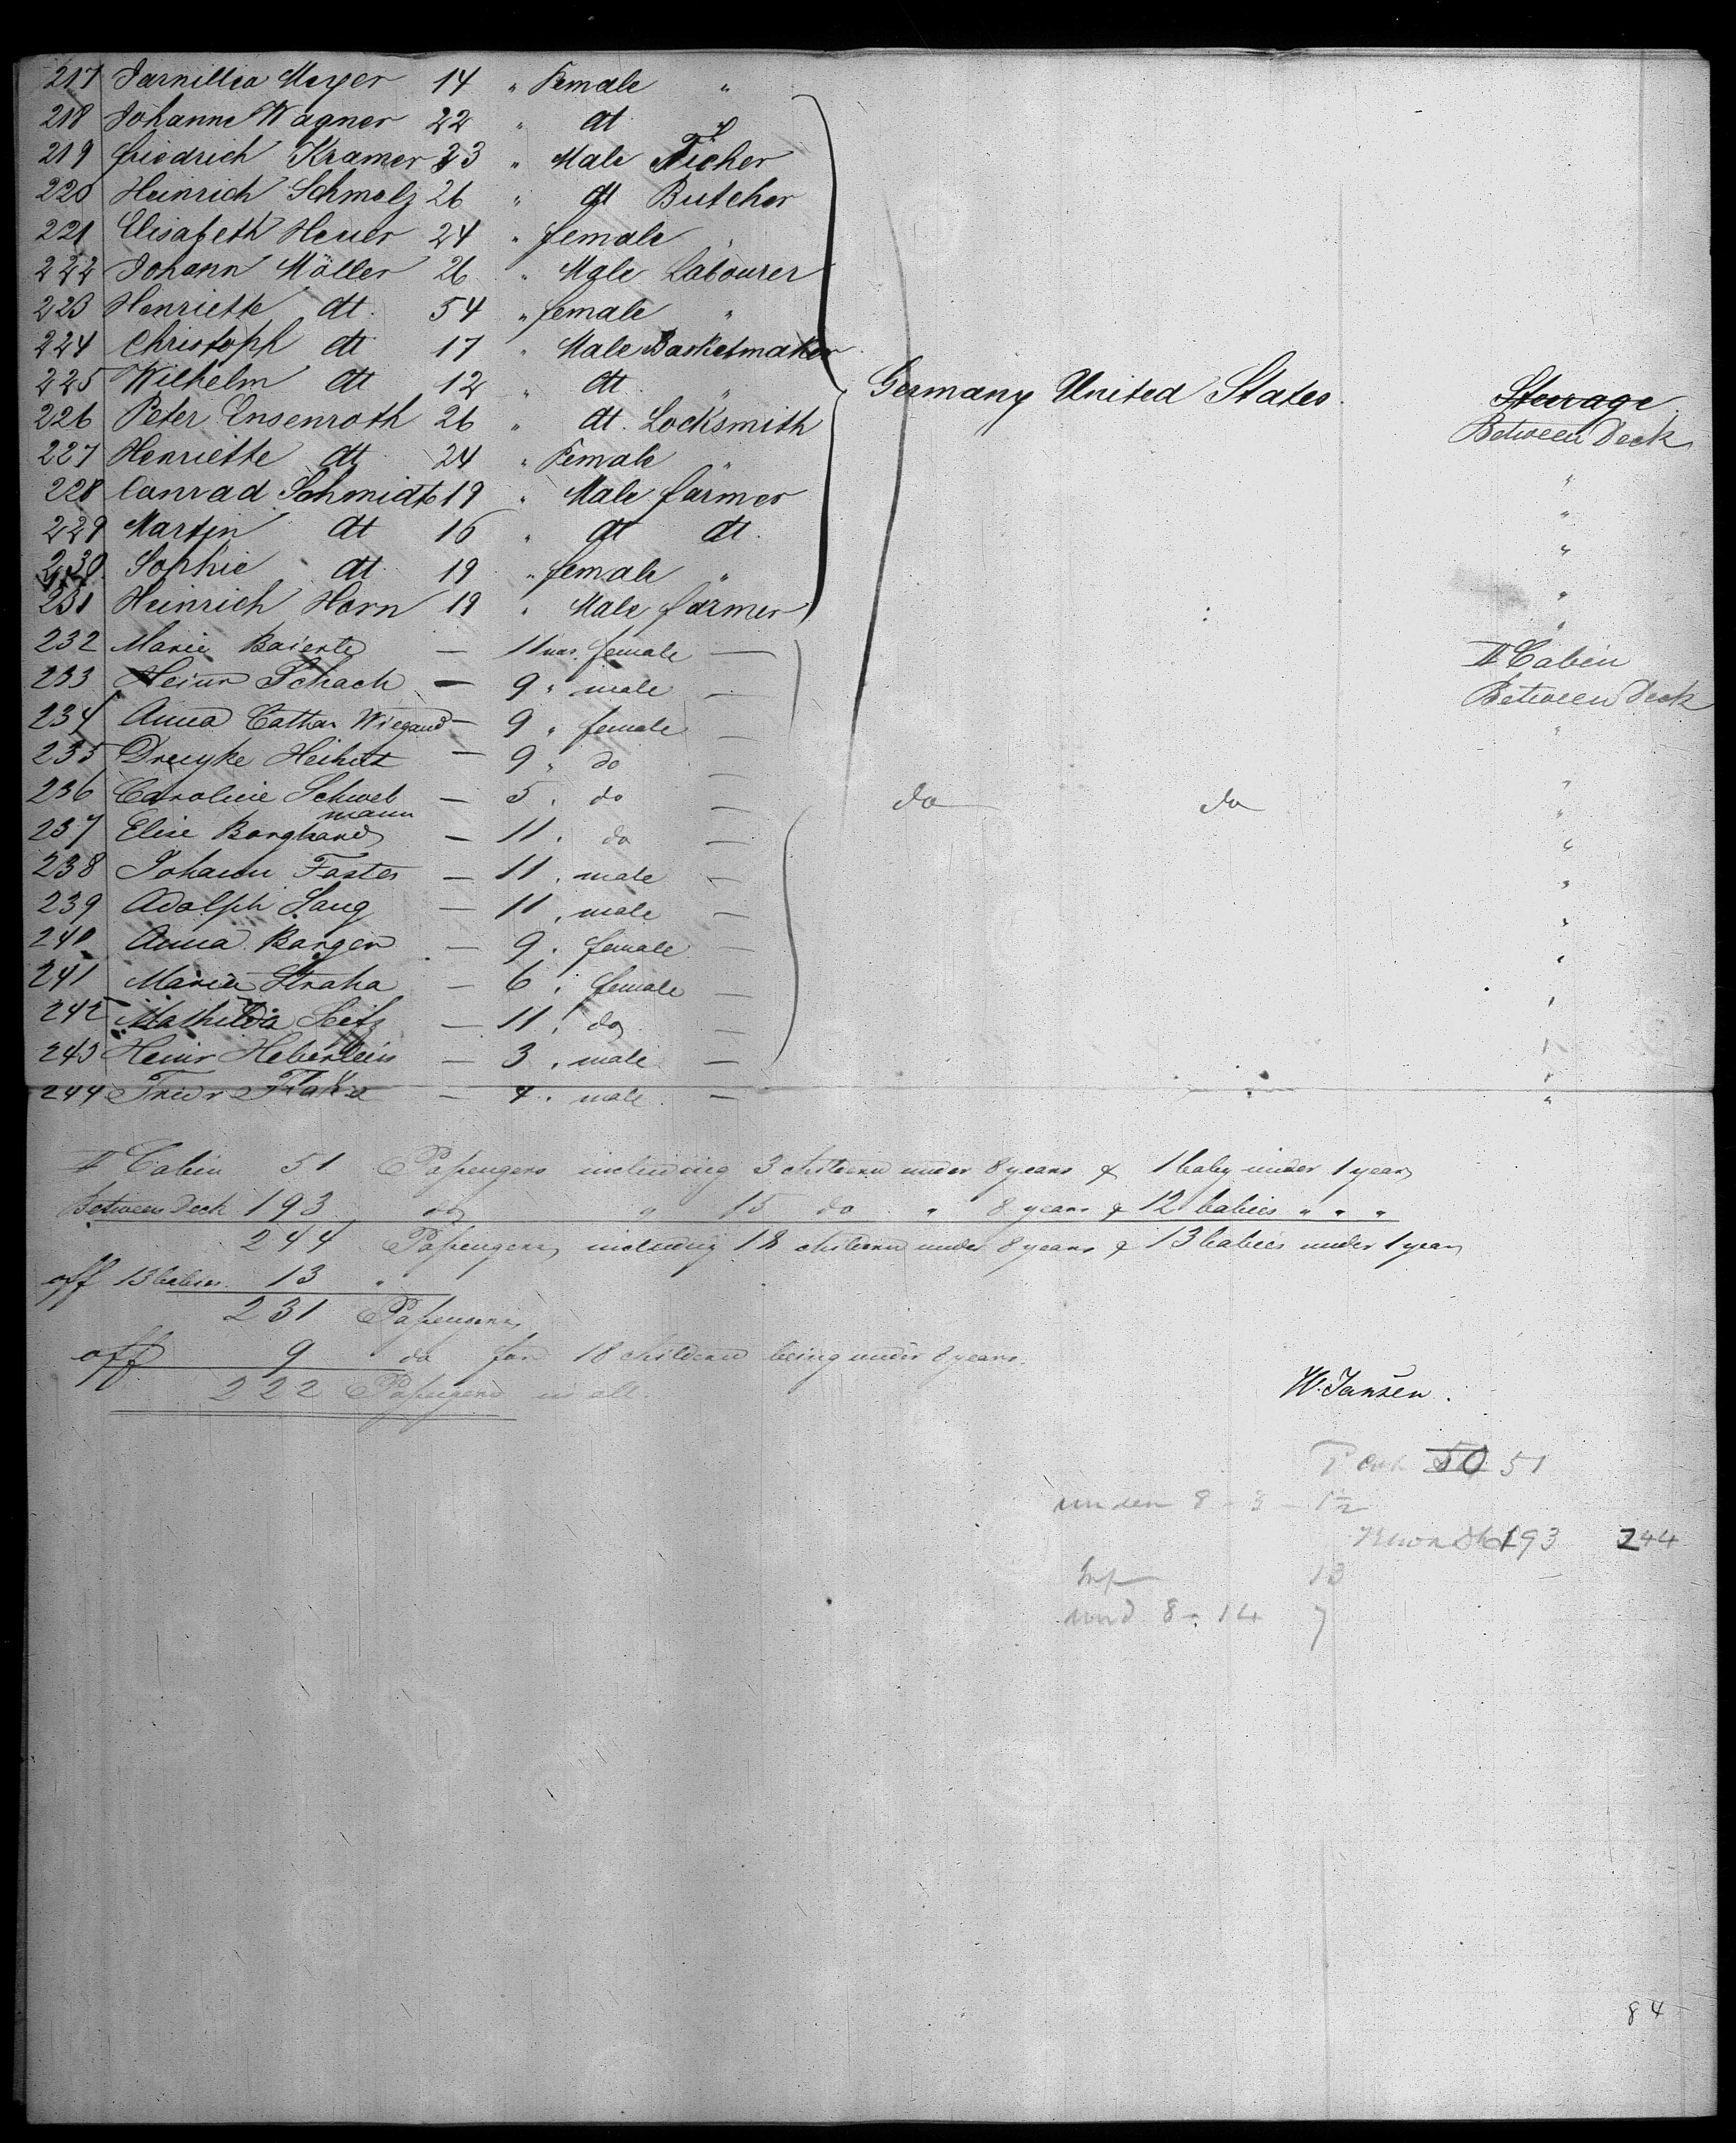 217 Meyer 14 " Female "
218 Johanne Wagner 22 " dt
219 friedrich Kramer 23 " Male
220 Heinrich Schmelz 26 " dt Butcher
221 Elisabeth Heuer 24 " female "
222 Johann Möller 26 " Male Labourer
223 Henriette dt. 54 " female "
224 Christoph dt 17 " Male Basketmaker
225 Wilhelm dt 12 " dt " Germany United States. Steerage
226 Peter Ensenroth 26 " dt. Locksmith Between Deck
227 Henriette dt 24 " Female " "
228 Conrad Schmidt 19 " Male farmer "
229 Martin dt 16 " dt dt. "
230 Sophie dt 19 " female " "
231 Heinrich Horn 19 " Male farmer "
232 Marie Baierle — 11 mos. female — II Cabin
233 Heinr Schach — 9 " male — Between Deck
234 Anna Cathar Wiegand — 9 " female — "
235 — 9 " do —
236 Caroline Schwebmann — 5 " do — do do
237 Elise Borghard — 11 " do — "
238 Johann Faster — 11 " male — "
239 Adolph Lang — 11 " male — "
240 Anna Bargen — 9 " female — "
241 Maria Straha — 6 " female — "
242 Mathilda Seitz — 11 " do — "
243 Heinr Heberlein — 3 " male — "
244 Friedr Flake — 4 " male — "
II Cabin 51 Passengers including 3 children under 8 years & 1 baby under 1 year
Between Deck 193 do " 15 do " 8 years & 12 babies " " "
244 Passengers including 18 children under 8 years & 13 babies under 1 year
off 13 babies 13 "
231 Passengers
off 9 do for 18 children being under 8 years.
222 Passengers in all.
W. Jansen.
50 51
under 8 - 3 - 1½
193 244
Inf 13
und 8-14 7
84